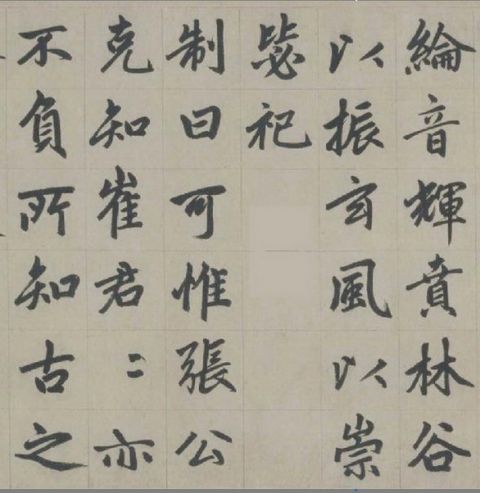 綸音輝賁林谷
以振玄風以崇
毖祀
制曰可惟張公
克知崔君〻亦
不負所知古之